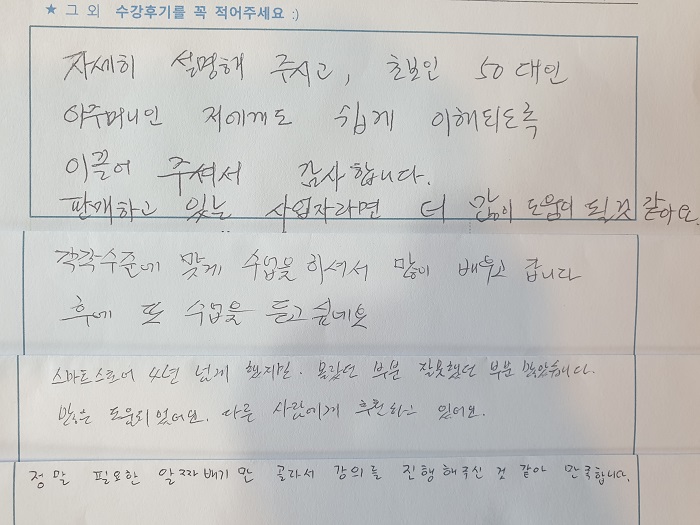 ★ 그 외 수강후기를 꼭 적어주세요 :)
자세히 설명해 주시고, 초보인 50대인
아주머니인 저에게도 쉽게 이해되도록
이끌어 주셔서 감사합니다.
판매하고 있는 사업자라면 더 많이 도움이 될것 같아요.
각각수준에 맞게 수업을 하셔서 많이 배우고 갑니다
후에 또 수업을 듣고싶네요
스마트스토어 4년 넘게 했지만. 몰랐던 부분 잘못했던 부분 많았습니다.
많은 도움되었어요. 다른 사람에게 추천하고 있어요.
정말 필요한 알짜배기만 골라서 강의를 진행해주신 것 같아 만족합니다.